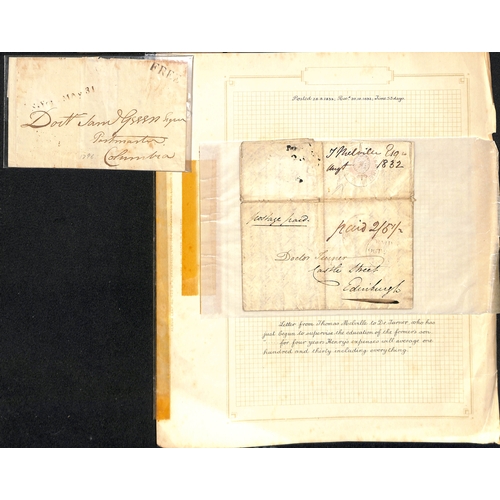 May 31
FREE
Doctr Saml Green Esquire
Postmaster
Columbia
Posted 28.9.1832, Recd 30.10.1832, Time 32 days.
T Melville Esq
Augt 1832
postage paid.
paid 2/5½
Doctor Turner
Castle Street
Edinburgh
Letter from Thomas Melville to Dr. Turner, who has
just began to supervise the education of the former's son
for four year Henry's expenses will average one
hundred and thirty including everything.